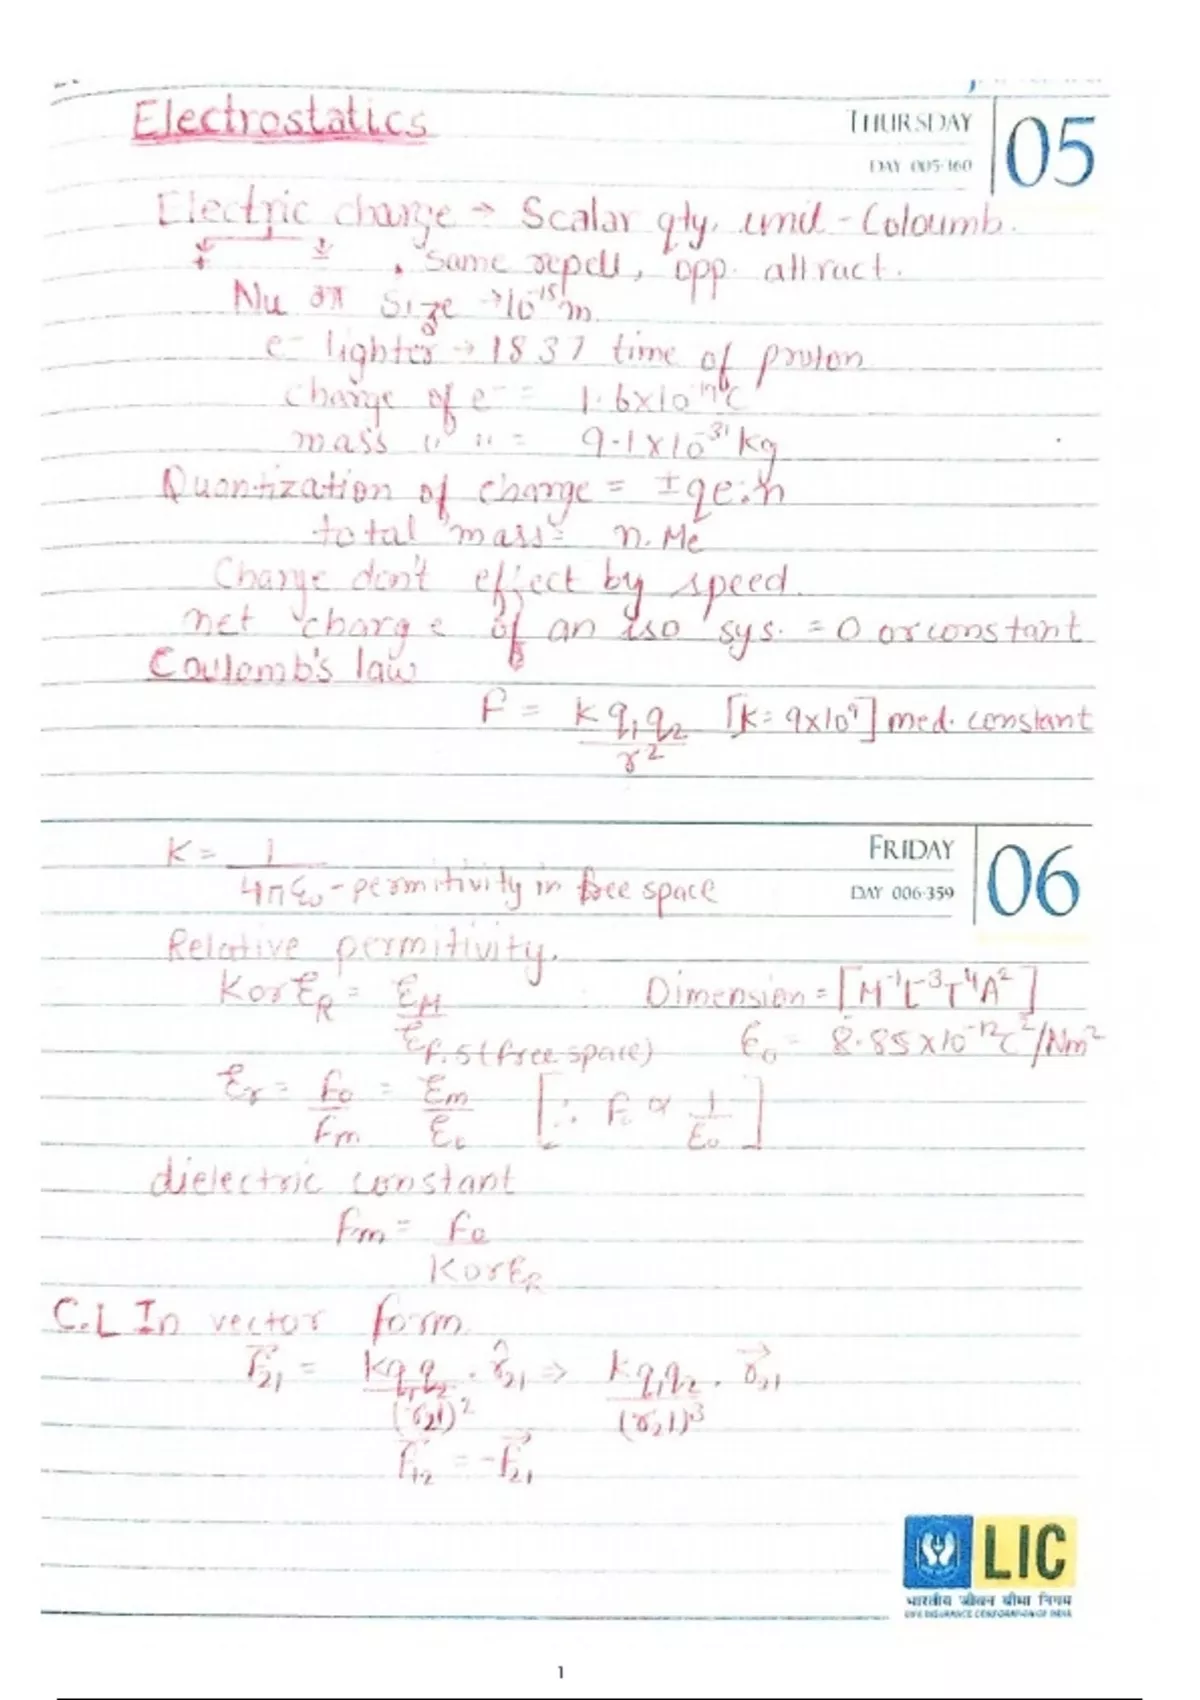 Electrostatics
THURSDAY
DAY 005-360
05
Electric charge → Scalar qty, unit - Coloumb.
+ -
. Same repell, opp. attract.
Nu का Size → 10^-15 m
e- lighter → 1837 time of proton
charge of e- = 1.6x10^-19 C
mass " " = 9.1x10^-31 kg
Quantization of charge = ±qe.n
total mass = n.Me
Charge don't effect by speed.
net charge of an iso sys. = 0 or constant
Coulomb's law
F = K q1 q2 / r^2 [K = 9x10^9] med. constant
FRIDAY
DAY 006-359
06
K = 1 / 4πε0 - permitivity in free space
Relative permitivity.
K or ER = EM / Ef.s (free space) Dimension = [M^-1 L^-3 T^4 A^2]
E0 = 8.85x10^-12 C^2/Nm^2
Er = F0 / Fm = Em / E0 [∴ F0 ∝ 1 / E0]
dielectric constant
Fm = F0 / K or ER
C.L In vector form
F⃗21 = kq1q2 / (r21)^2 . r̂21 ⇒ kq1q2 / (r21)^3 . r⃗21
F⃗12 = -F⃗21
LIC
भारतीय जीवन बीमा निगम
LIFE INSURANCE CORPORATION OF INDIA
1